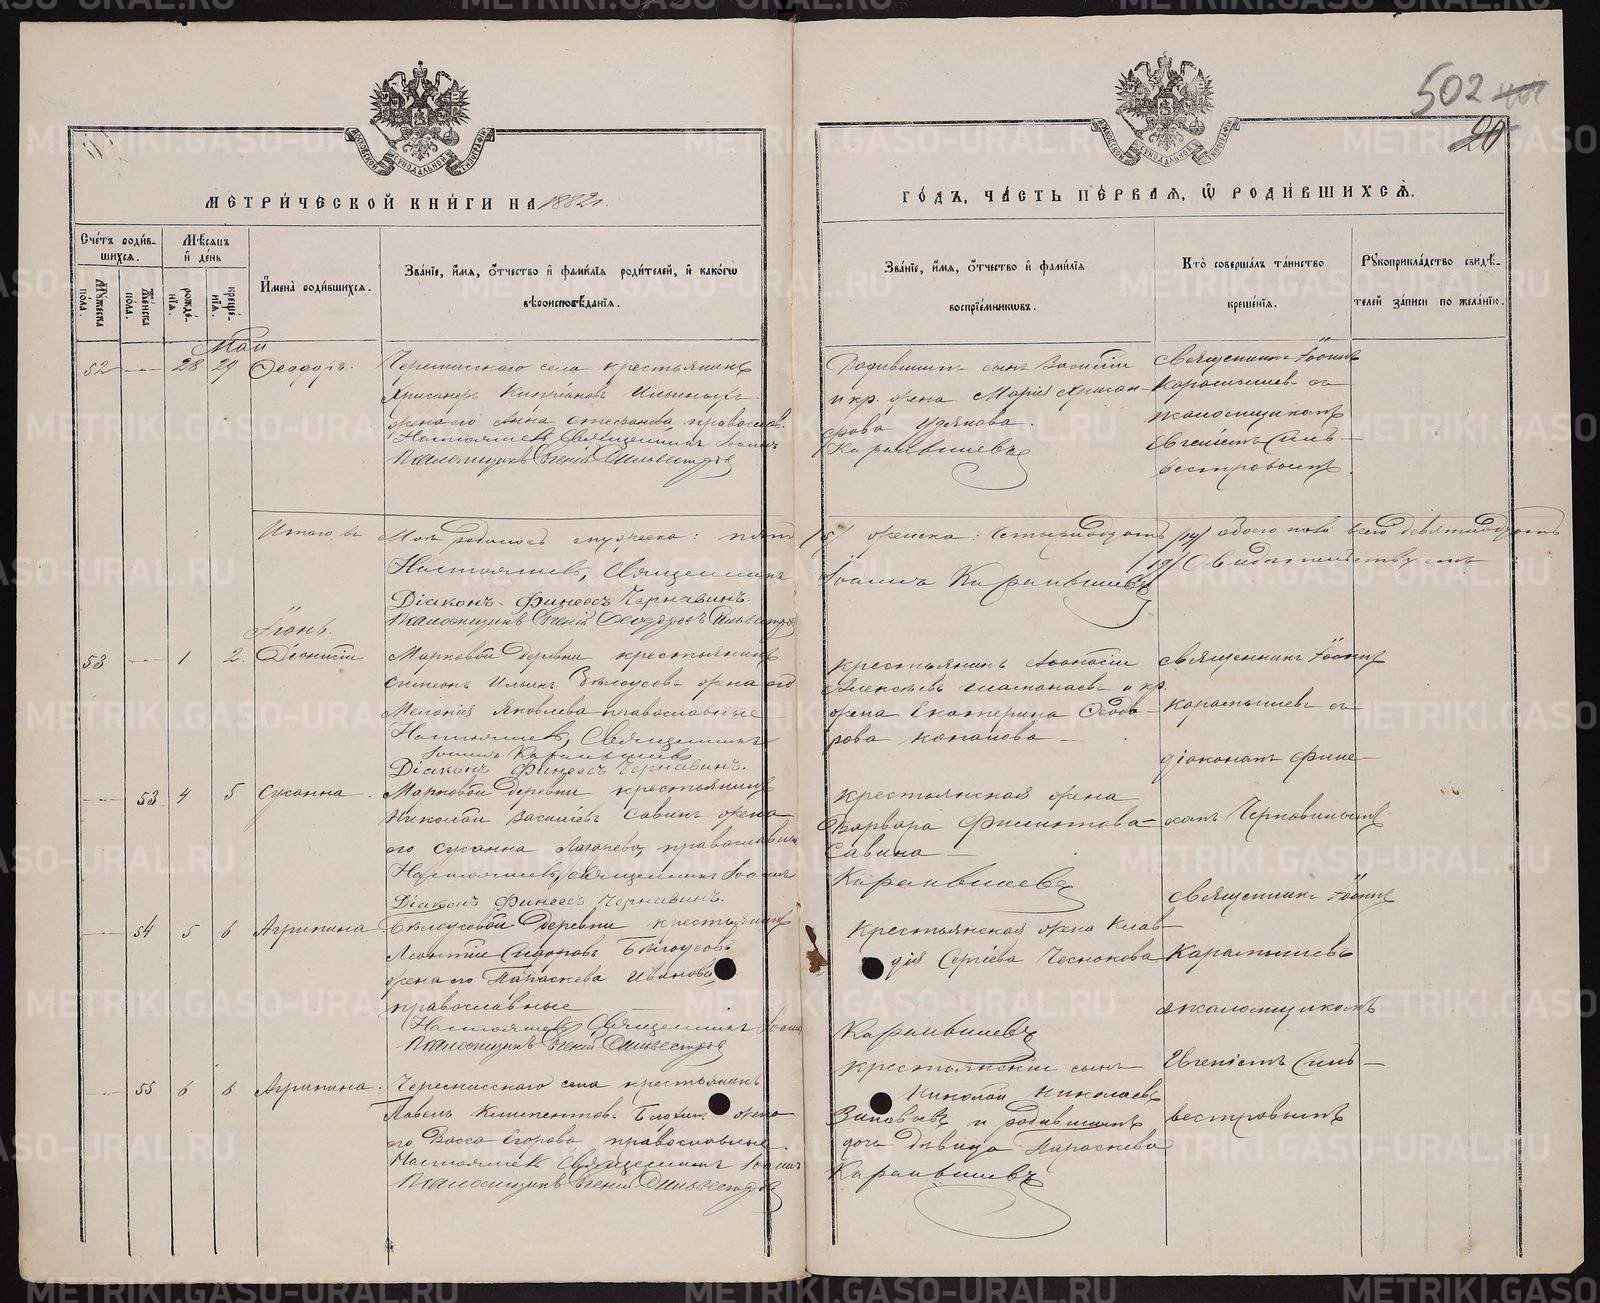 502
20
МЕТРИ́ЧЕСКОЙ КНИ́ГИ НА 1882 г.
ГО́ДЪ, ЧА́СТЬ ПЕ́РВАЯ, Ѿ РОДИ́ВШИХСѦ.
Сче́тъ роди́в-
шихсѧ.
Мꙋжеска по́ла.
Же́нска по́ла.
Мѣ́сѧцъ и҆ де́нь
рожде́-
нїѧ.
креще́-
нїѧ.
И҆мена̀ роди́вшихсѧ.
Зва́нїе, и҆́мѧ, ѻ҆́тчество и҆ фами́лїѧ роди́телей, и҆ како́гѡ
вѣроисповѣ́данїѧ.
Зва́нїе, и҆́мѧ, ѻ҆́тчество и҆ фами́лїѧ
воспрїе́мникѡвъ.
Кто̀ соверша́лъ та́инство
креще́нїѧ.
Рꙋкоприкла́дство свидѣ́-
телей за́писи по жела́нїю.
Май
52 — 28 29 Ѳеодоръ.
Черемисскаго села крестьянинъ
жена его Анна Степанова, православ.
Настоятель, Священникъ Іоаннъ
Псаломщикъ Евгеній Сильвестровъ
Родившихъ сынъ Василій
и кр. жена Марія
Карамышевъ
Священникъ Іоаннъ
Карамышевъ съ
псаломщикомъ
Евгеніемъ Силь-
вестровымъ
Итого въ Маѣ родилось мужеска: пять
/5/ женска: четырнадцать /14/ обоего пола всего девятнадцать
/19/ Свидѣтельствуемъ
Настоятель, Священникъ
Іоаннъ Карамышевъ
Діаконъ Финеесъ Чернавинъ.
Псаломщикъ Евгеній Ѳеодоровъ Сильвестровъ
Іюнь.
53 — 1 2 Діонисій
Марковой деревни крестьянинъ
Симеонъ Ильинъ Бѣлоусовъ жена его
Меланія Яковлева православные
Настоятель, Священникъ
Іоаннъ Карамышевъ
Діаконъ Финеесъ Чернавинъ.
крестьянинъ Аѳонасій
Алексѣевъ и кр.
жена Екатерина Ѳеодо-
рова
Священникъ Іоаннъ
Карамышевъ съ
діакономъ Фине-
есомъ Чернавинымъ
— 53 4 5 Сусанна.
Марковой деревни крестьянинъ
Николай Васильевъ Савинъ жена
его Сусанна православн.
Настоятель, священникъ Іоаннъ
Діаконъ Финеесъ Чернавинъ.
крестьянская жена
Варвара
Савина
Карамышевъ
— 54 5 6 Агрипина
Бѣлоусовой деревни крестьянинъ
Леонтій Сидоровъ Бѣлоусовъ
жена его Параскева Иванова
православные
Настоятель, Священникъ Іоаннъ
Псаломщикъ Евгеній Сильвестровъ
крестьянская жена Клав-
дія Сергіева Чеснокова
Карамышевъ
Священникъ Іоаннъ
Карамышевъ
съ псаломщикомъ
Евгеніемъ Силь-
вестровымъ
— 55 6 6 Агрипина.
Черемисскаго села крестьянинъ
Павелъ Климентовъ жена
его Васса Егорова православные.
Настоятель Священникъ Іоаннъ
Псаломщикъ Евгеній Сильвестровъ
крестьянскій сынъ
Николай Николаевъ
Зиновьевъ и родившихъ
дочь дѣвица Параскева
Карамышевъ
METRIKI.GASO-URAL.RU